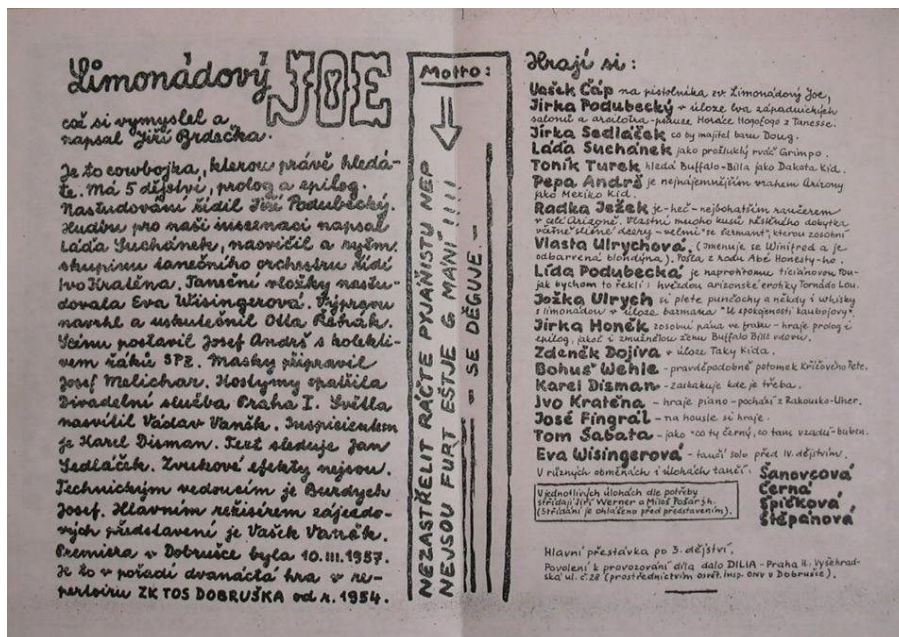 Limonádový JOE
což si vymyslel a
napsal Jiří Brdečka.
Je to cowbojka, kterou právě hledá-
te. Má 5 dějství, prolog a epilog.
Nastudování řídil Jiří Podubecký.
Hudbu pro naši inscenaci napsal
Láďa Suchánek, nacvičil a rytm.
skupinu tanečního orchestru řídí
Ivo Kratěna. Taneční vložky nastu-
dovala Eva Wisingerová. Výpravu
navrhl a uskutečnil Otta
Scénu postavil Josef Andrš s kolekti-
vem žáků SPŠ. Masky připravil
Josef Malichar. Kostymy
Divadelní služba Praha I. Světla
nasvítil Václav Vaněk. Inspicientem
je Karel Disman. Text sleduje Jan
Sedláček. Zvukové efekty nejsou.
Technickým vedoucím je Burdych
Josef. Hlavním režisérem zájezdo-
vých představení je Vašek Vaněk.
Premiéra v Dobrušce byla 10.III.1957.
Je to v pořadí dvanáctá hra v re-
pertoiru ZK TOS DOBRUŠKA od r. 1954.
Motto:
NEZASTŘELIT RÁČTE PYJÁNISTU NEP
NEJSOU FURT EŠTJE G MÁNÍ !!!!
— SE DĚGUJE.—
Hrají si:
Vašek Čáp na pistolníka zv. Limonádový Joe,
Jirka Podubecký v úloze lva západnických
salonů a Horáce Hogofogo z Tanesse.
Jirka Sedláček co by majitel baru Doug.
Láďa Suchánek jako prošluklý rváč Grimpo.
Toník Turek hledá Buffalo-Billa jako Dakota Kid.
Pepa Andrš je nejnájemnějším vrahem Arizony
jako Mexiko Kid.
Radka Ježek je-heč-nejbohatším rančerem
v celé Arizoně. Vlastní mnoho kusů dobytka
dcery - velmi se šermant, kterou zosobní
Vlasta Ulrychová. (Jmenuje se Winifred a je
odbarvená blondýna). Pošla z rodu Abé Honesty-ho.
Lída Podubecká je naprohitomu ticiánovou tou-
jak bychom to řekli: hvězdou arizonské erotiky Tornádo Lou.
Jožka Ulrych si plete punčochy a někdy i whisky
s limonádou v úloze barmana "U spokojenosti kaubojovy".
Jirka Honěk zosobní pána ve fraku - hraje prolog i
epilog, jakož i zmužnělou ženu Buffalo Bille vdovu.
Zdeněk Dojiva v úloze Taky Kida.
Bohuš Wehle - pravděpodobně potomek Křížového Pete.
Karel Disman - zaskakuje kde je třeba.
Jvo Kratěna - hraje piano - pochází z Rakousko-Uher.
José Fingrál - na housle si hraje.
Tom Šabata - jako "co ty černý, co tam vzadu - buben.
Eva Wisingerová - tančí solo před IV. dějstvím.
V různých obměnách i úlohách tančí:
Šanovcová
Černá
Špičková
Štěpánová
V jednotlivých úlohách dle potřeby
střídají Jiří Werner a Miloš Pošář jh.
(Střídání je ohlášeno před představením).
Hlavní přestávka po 3. dějství.
Povolení k provozování díla dalo DILIA - Praha II. Vyšehrad-
ská ul. č. 28 (prostřednictvím osvět. insp. ONV v Dobrušce).